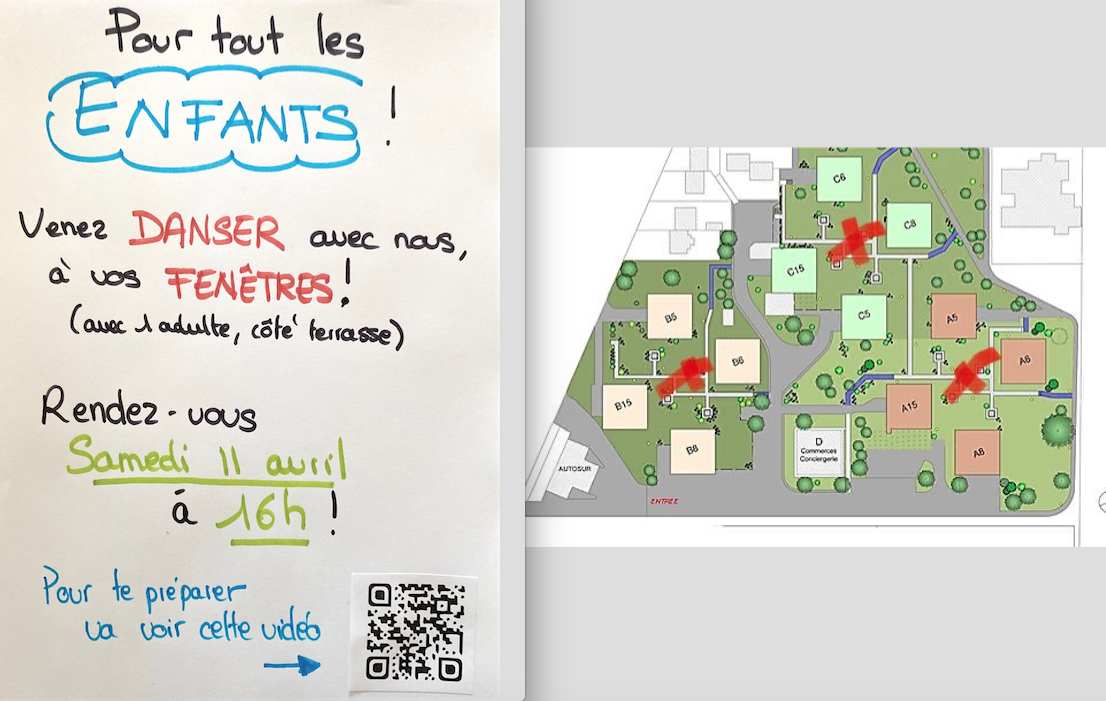 Pour tout les
ENFANTS !
Venez DANSER avec nous,
à vos FENÊTRES !
(avec 1 adulte, côté terrasse)
Rendez-vous
Samedi 11 avril
à 16h !
Pour te préparer
va voir cette vidéo
C6
C8
C15
C5
B5
B6
B15
B8
A5
A6
A15
A8
D
Commerces
Conciergerie
AUTOSUR
ENTREE